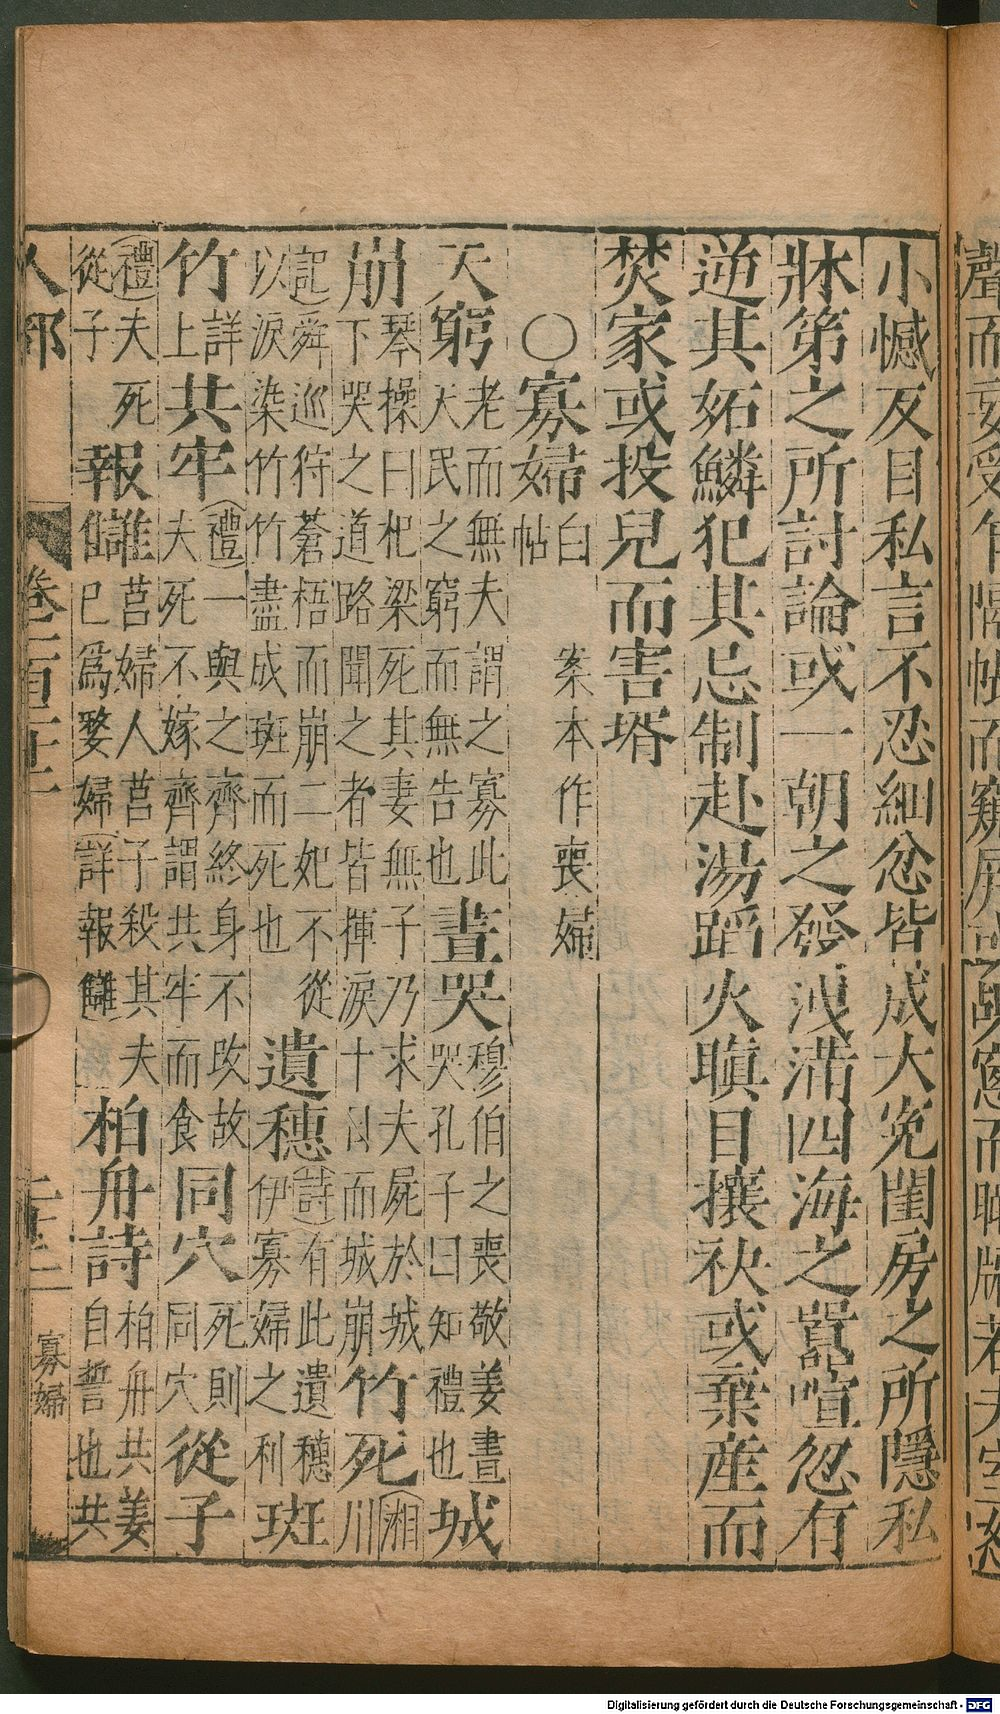 小憾反目私言不忍細忿皆成大冤閨房之所隱私
牀第之所討論或一朝之發洩滿四海之囂喧忽有
逆其妬鱗犯其忌制赴湯蹈火瞋目攘袂或棄産而
焚家或投兒而害壻
○寡婦白帖 案本作喪婦
天窮老而無夫謂之寡此天民之窮而無告也晝哭穆伯之喪敬姜晝哭孔子曰知禮也城
崩琴操曰杞梁死其妻無子乃求夫屍於城下哭之道路聞之者皆揮淚十日而城崩竹死(湘川
記)舜巡狩蒼梧而崩二妃不從以淚染竹竹盡成斑而死也遺穗(詩)有此遺穗伊寡婦之利斑
竹詳上共牢(禮)一與之齊終身不改故夫死不嫁齊謂共牢而食同穴死則同穴從子
(禮)夫死從子報讎莒婦人莒子殺其夫已爲嫠婦(詳報讎)柏舟詩柏舟共姜自誓也共
人部
寡婦
Digitalisierung gefördert durch die Deutsche Forschungsgemeinschaft - DFG